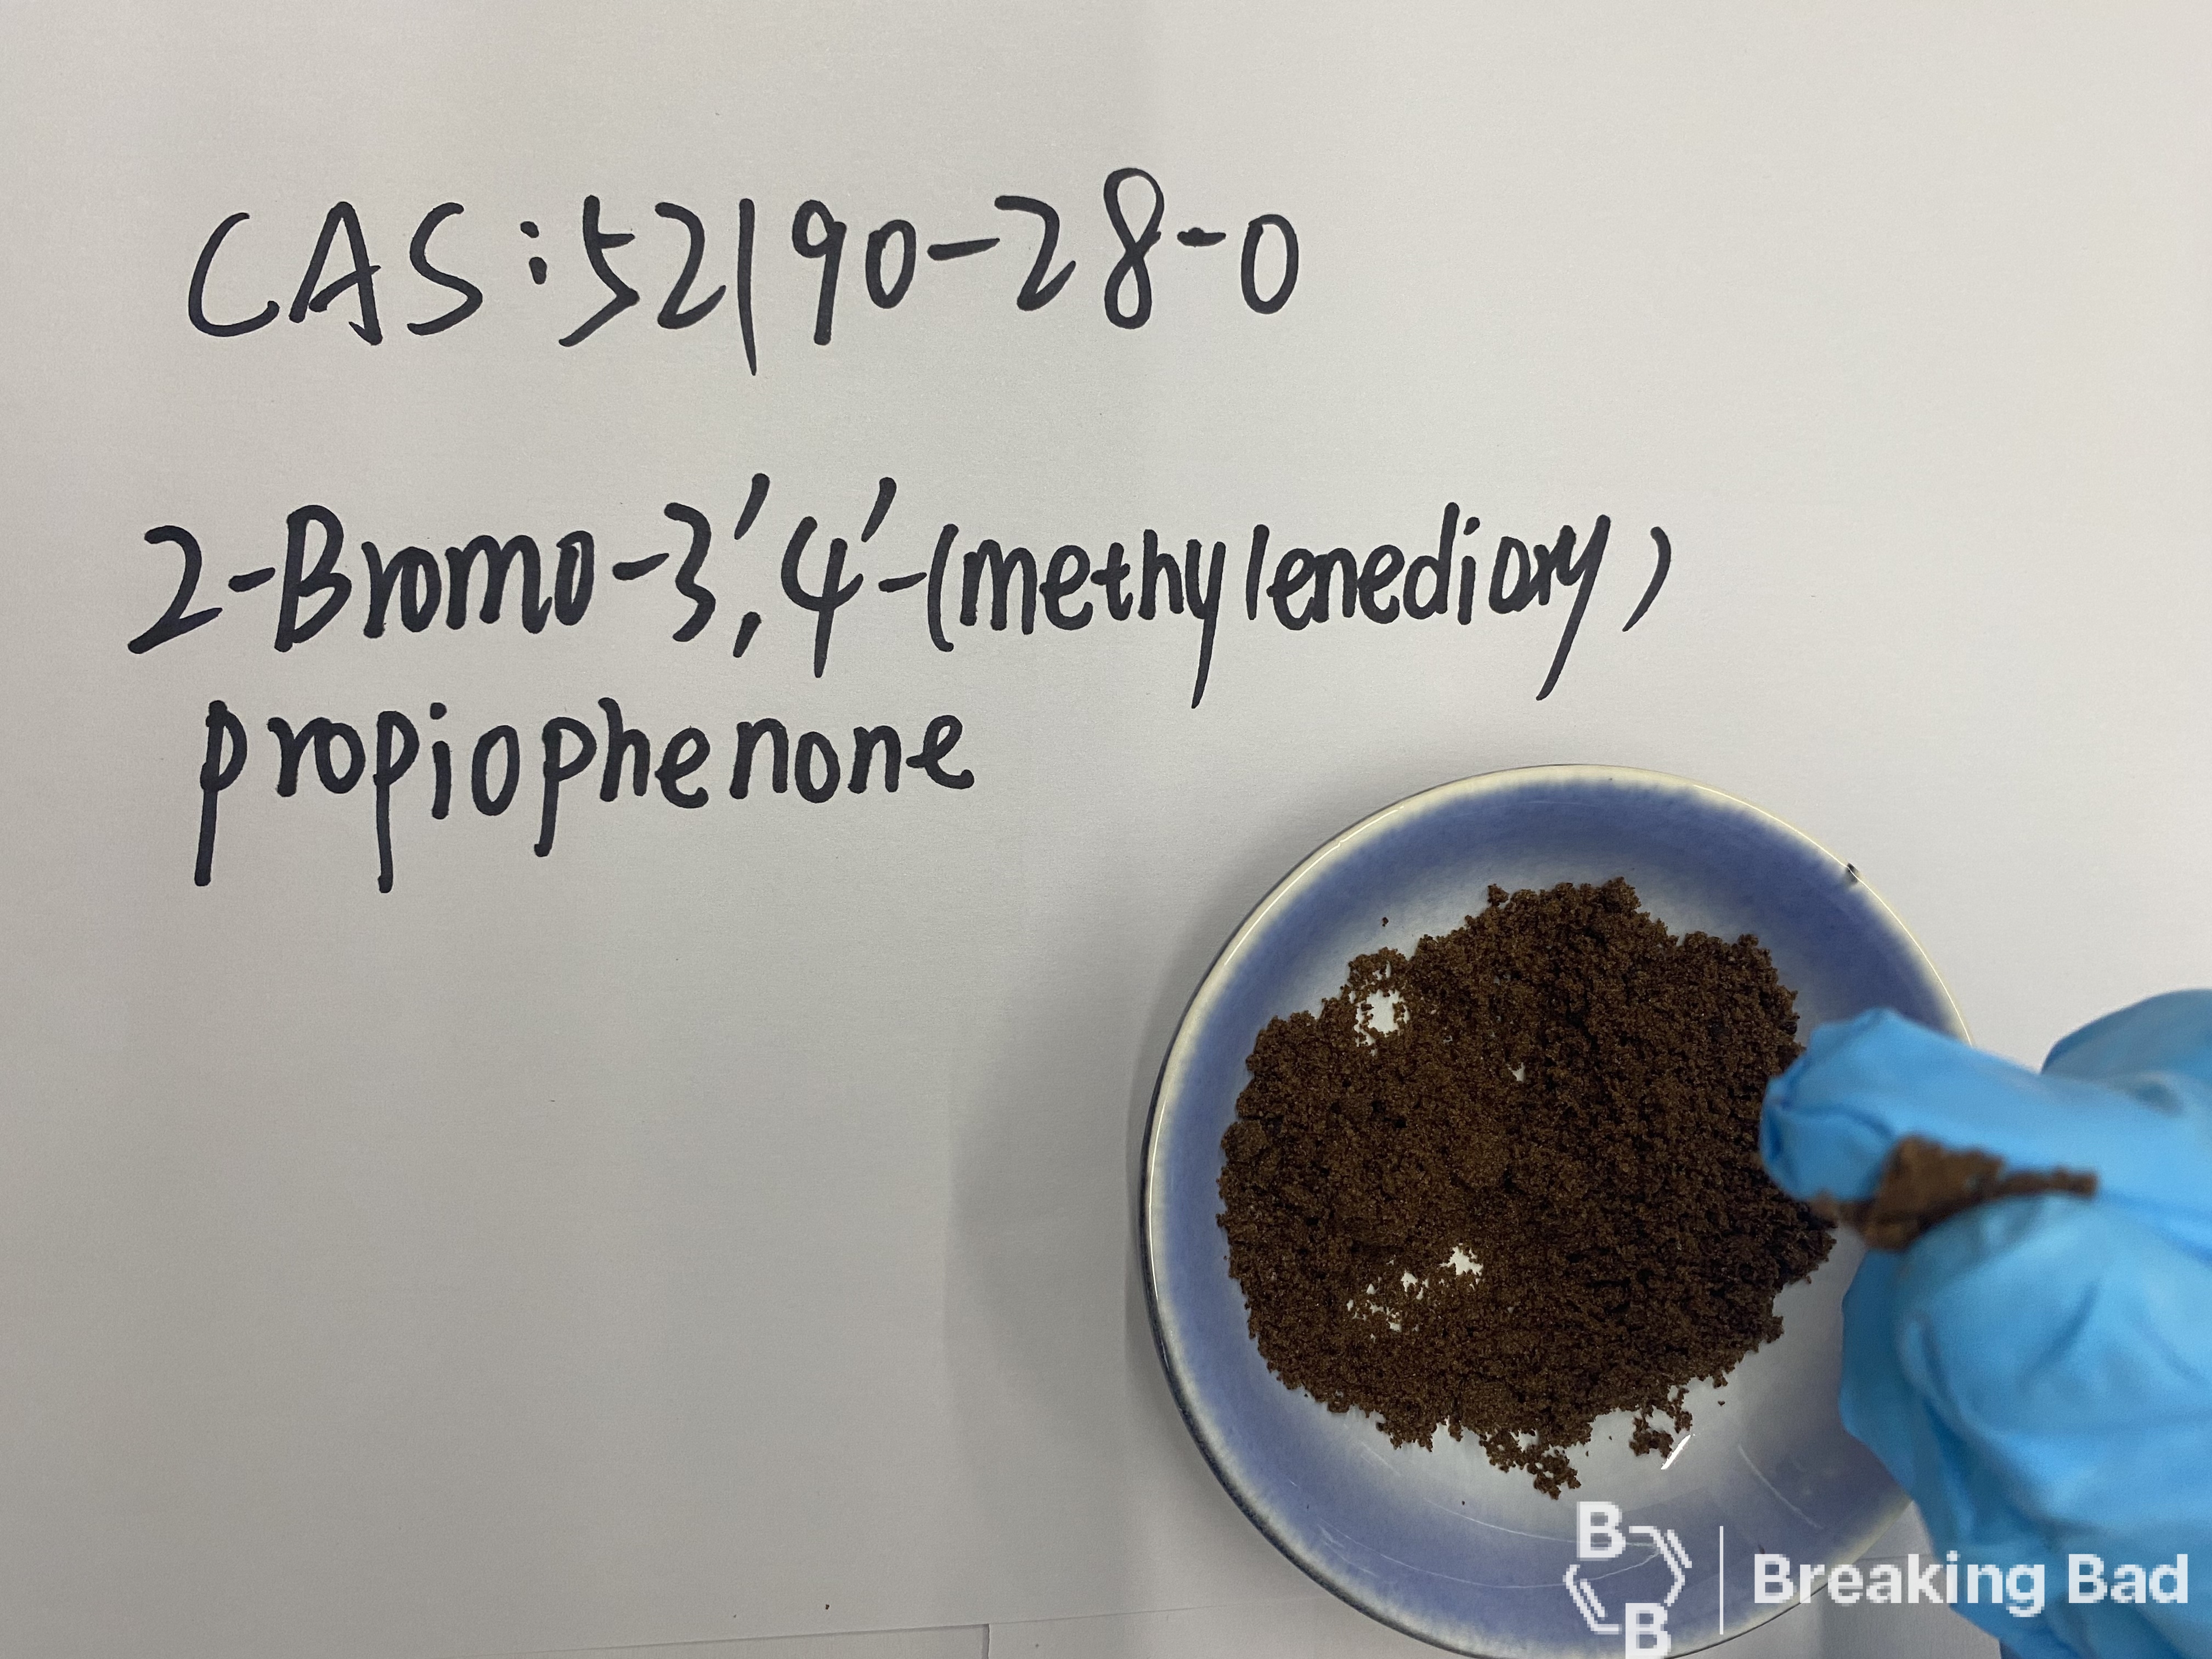 CAS:52190-28-0
2-Bromo-3',4'-(methylenedioxy)
propiophenone
B
B
Breaking Bad